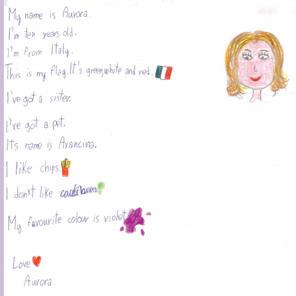 My name is Aurora.
I'm ten years old.
I'm from Italy.
This is my flag. It's green, white and red.
I've got a sister.
I've got a pet.
Its name is Arancina.
I like chips.
I don't like
My favourite colour is violet
Love
Aurora